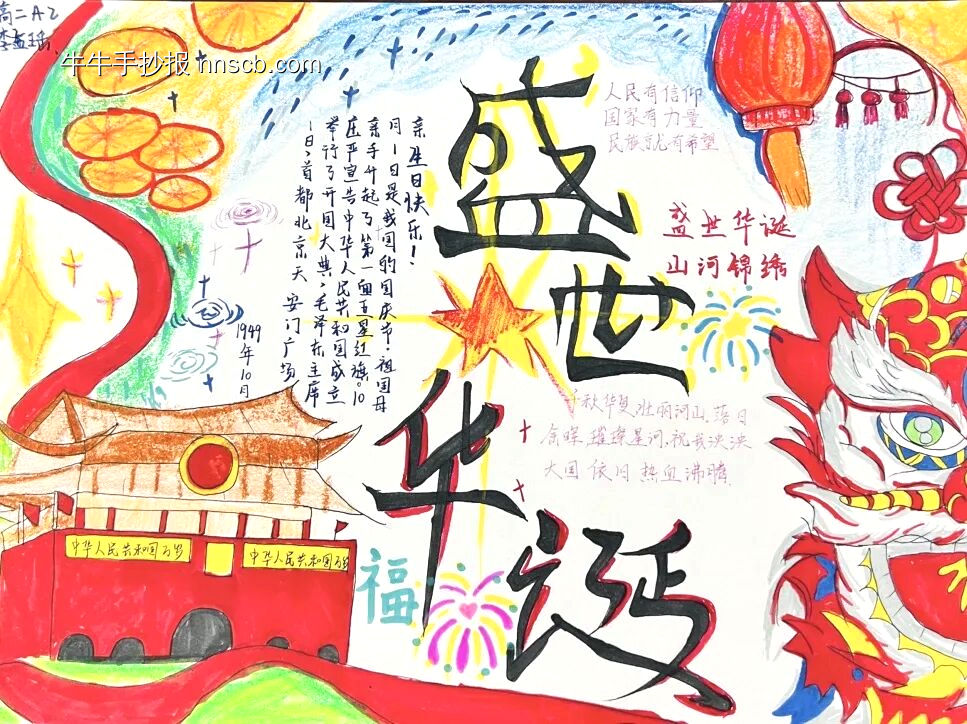 高二A2
牛牛手抄报 nnscb.com
盛世华诞
人民有信仰
国家有力量
民族就有希望
盛世华诞
山河锦绣
1949年10月
1日，首都北京天安门广场
举行了开国大典，毛泽东主席
庄严宣告中华人民共和国成立
亲手升起了第一面五星红旗。10
月1日是我国的国庆节。祖国母
亲生日快乐！
千秋华夏，壮丽河山，落日
余晖，璀璨星河，祝我泱泱
大国 依旧 热血沸腾
中华人民共和国万岁
中华人民共和国万岁
福